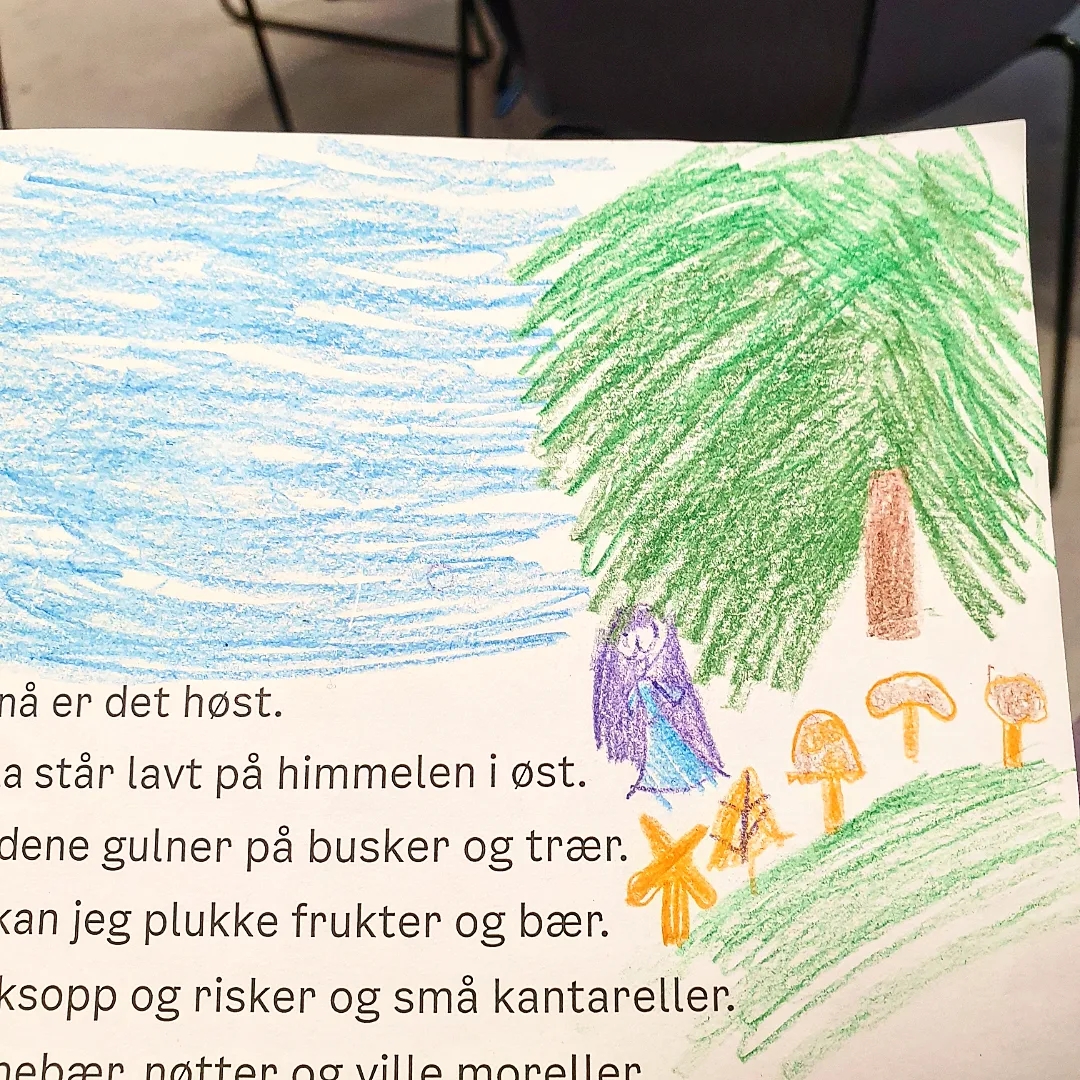 nå er det høst.
a står lavt på himmelen i øst.
dene gulner på busker og trær.
kan jeg plukke frukter og bær.
ksopp og risker og små kantareller.
nebær, nøtter og ville moreller